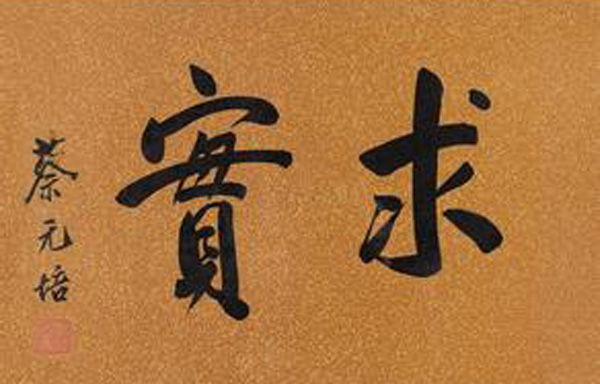 求實
蔡元培